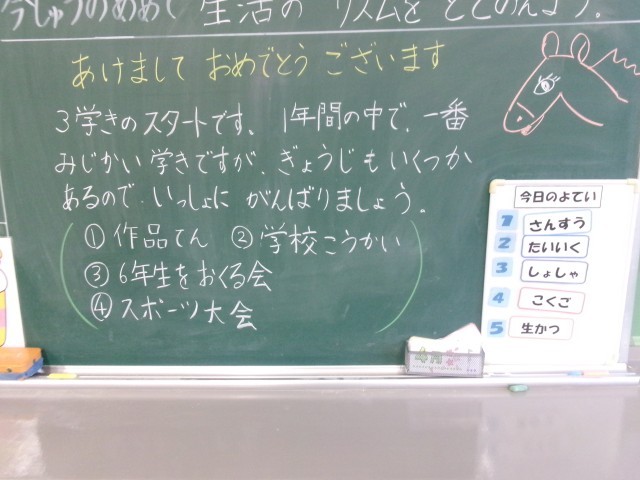 今しゅうのめあて 生活の リズムを ととのえよう。
あけまして おめでとう ございます
3学きのスタートです、1年間の中で、一番
みじかい学きですが、ぎょうじもいくつか
あるので、いっしょに がんばりましょう。
① 作品てん ② 学校こうかい
③ 6年生をおくる会
④ スポーツ大会
今日のよてい
1 さんすう
2 たいいく
3 しょしゃ
4 こくご
5 生かつ